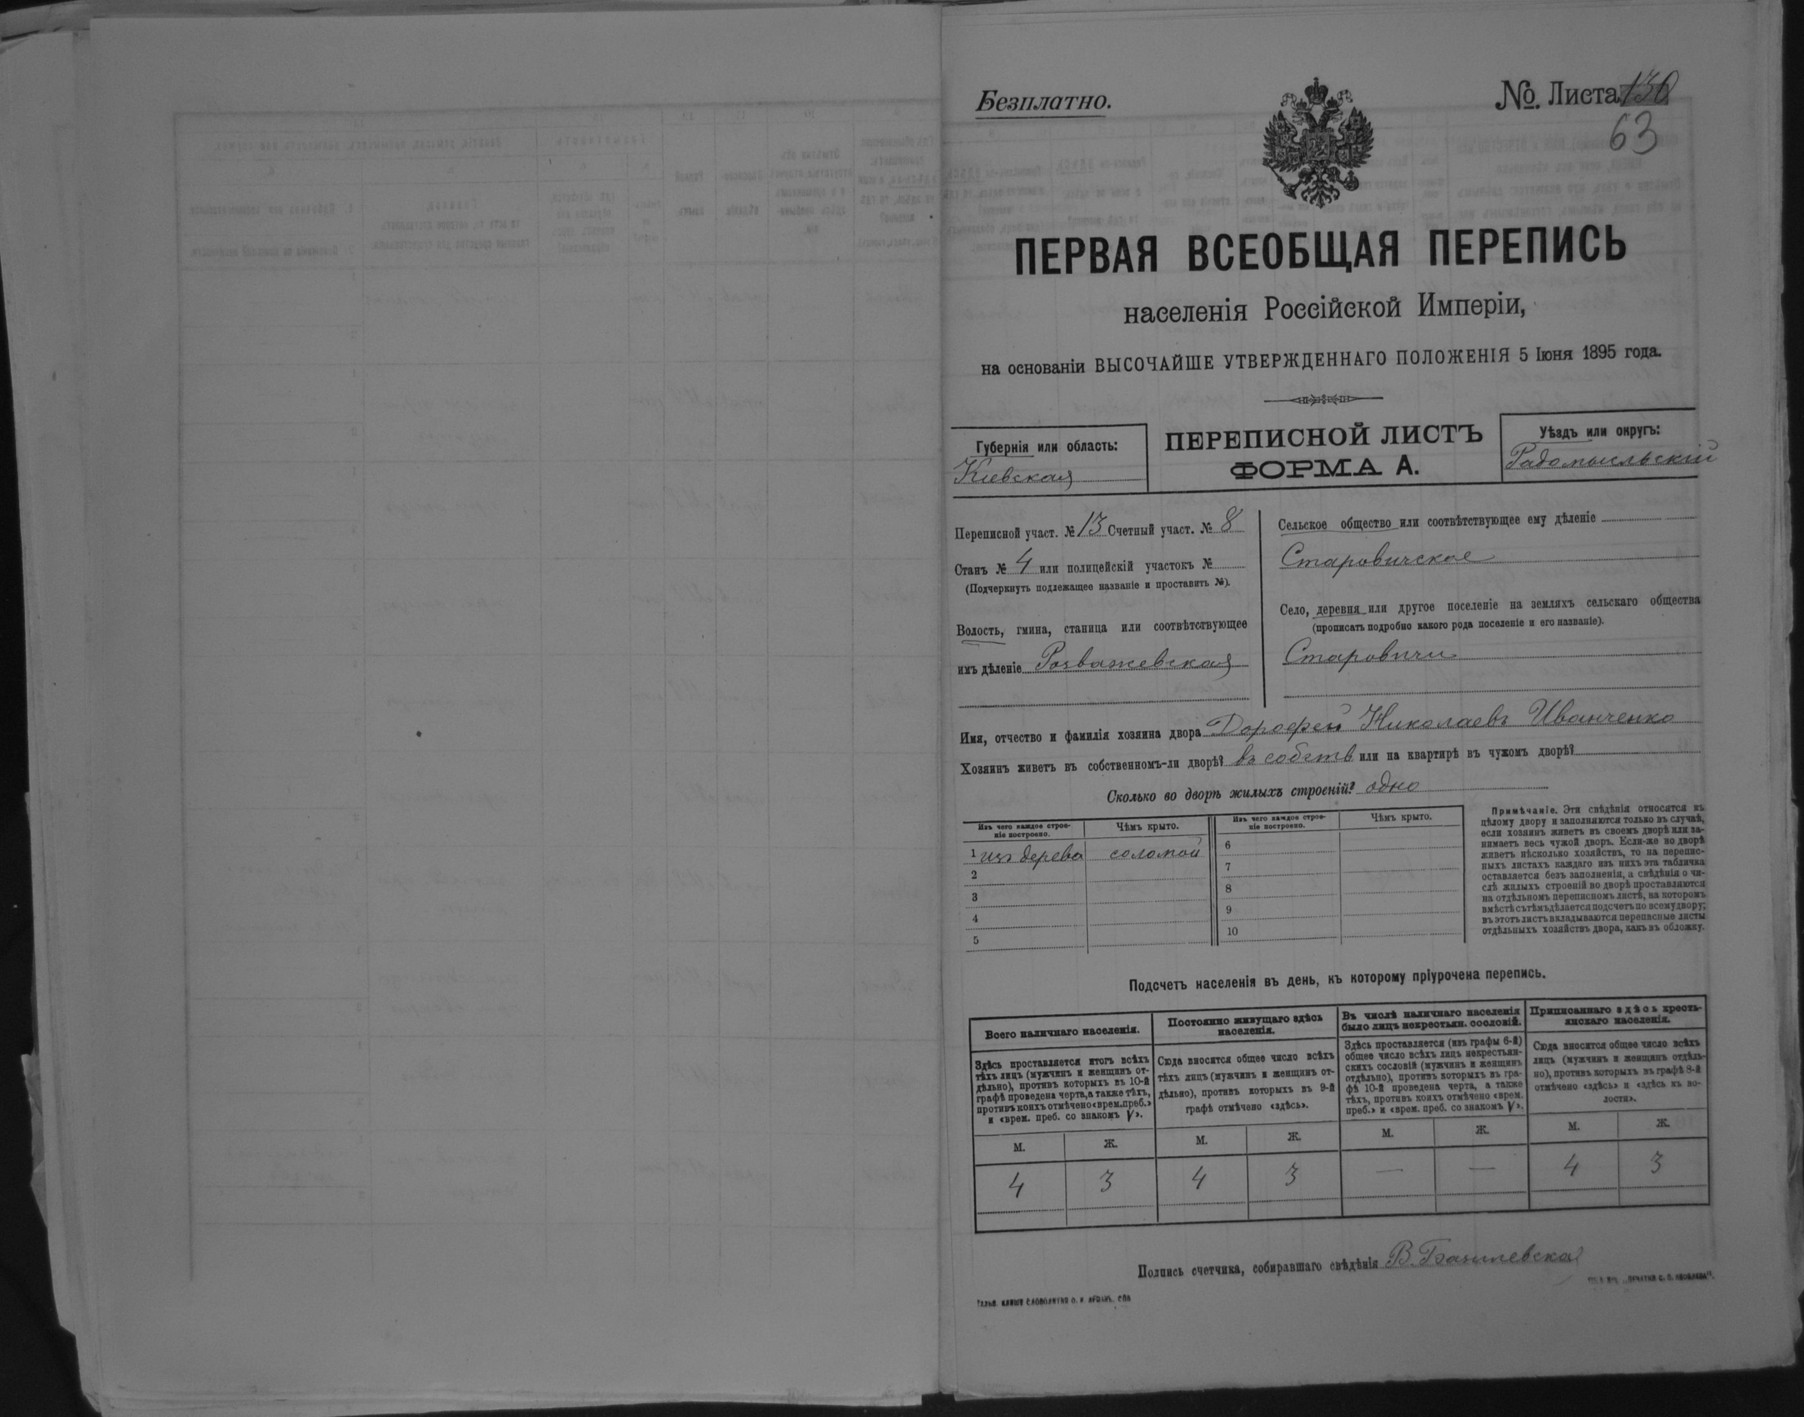 Безплатно.
№. Листа 130
63
ПЕРВАЯ ВСЕОБЩАЯ ПЕРЕПИСЬ
населенія Россійской Имперіи,
на основаніи ВЫСОЧАЙШЕ УТВЕРЖДЕННАГО ПОЛОЖЕНІЯ 5 Іюня 1895 года.
Губернія или область:
Кіевская
ПЕРЕПИСНОЙ ЛИСТЪ
ФОРМА А.
Уѣздъ или округъ:
Радомысльскій
Переписной участ. № 13 Счетный участ. № 8
Станъ № 4 или полицейскій участокъ №
(Подчеркнуть подлежащее названіе и проставить №).
Волость, гмина, станица или соотвѣтствующее
имъ дѣленіе Розважевская
Сельское общество или соотвѣтствующее ему дѣленіе
Старовичское
Село, деревня или другое поселеніе на земляхъ сельскаго общества
(прописать подробно какого рода поселеніе и его названіе).
Старовичи
Имя, отчество и фамилія хозяина двора Дорофей Николаевъ Иванченко
Хозяинъ живетъ въ собственномъ-ли дворѣ? въ собств или на квартирѣ въ чужомъ дворѣ?
Сколько во дворѣ жилыхъ строеній? одно
Изъ чего каждое строе-
ніе построено.
Чѣмъ крыто.
Изъ чего каждое строе-
ніе построено.
Чѣмъ крыто.
1 изъ дерева соломой
2
3
4
5
6
7
8
9
10
Примѣчаніе. Эти свѣдѣнія относятся къ
цѣлому двору и заполняются только въ случаѣ,
если хозяинъ живетъ въ своемъ дворѣ или за-
нимаетъ весь чужой дворъ. Если-же во дворѣ
живетъ нѣсколько хозяйствъ, то на перепис-
ныхъ листахъ каждаго изъ нихъ эта табличка
оставляется безъ заполненія, а свѣдѣнія о чи-
слѣ жилыхъ строеній во дворѣ проставляются
на отдѣльномъ переписномъ листѣ, на которомъ
вмѣстѣ съ тѣмъ дѣлается подсчетъ по всему двору;
въ этотъ листъ вкладываются переписные листы
отдѣльныхъ хозяйствъ двора, какъ въ обложку.
Подсчетъ населенія въ день, къ которому пріурочена перепись.
Всего наличнаго населенія.
Здѣсь проставляется итогъ всѣхъ
тѣхъ лицъ (мужчинъ и женщинъ от-
дѣльно), противъ которыхъ въ 10-й
графѣ проведена черта, а также тѣхъ,
противъ коихъ отмѣчено «врем. преб.»
и «врем. преб. со знакомъ V».
Постоянно живущаго здѣсь
населенія.
Сюда вносится общее число всѣхъ
тѣхъ лицъ (мужчинъ и женщинъ от-
дѣльно), противъ которыхъ въ 9-й
графѣ отмѣчено «здѣсь».
Въ числѣ наличнаго населенія
было лицъ некрестьян. сословій.
Здѣсь проставляется (изъ графы 6-й)
общее число всѣхъ лицъ некрестьян-
скихъ сословій (мужчинъ и женщинъ
отдѣльно), противъ которыхъ въ гра-
фѣ 10-й проведена черта, а также
тѣхъ, противъ коихъ отмѣчено «врем.
преб.» и «врем. преб. со знакомъ V».
Приписаннаго здѣсь кресть-
янскаго населенія.
Сюда вносится общее число всѣхъ
лицъ (мужчинъ и женщинъ отдѣль-
но), противъ которыхъ въ графѣ 8-й
отмѣчено «здѣсь» и «здѣсь къ во-
лости».
М. Ж. М. Ж. М. Ж. М. Ж.
4 3 4 3 — — 4 3
Подпись счетчика, собиравшаго свѣдѣнія В.